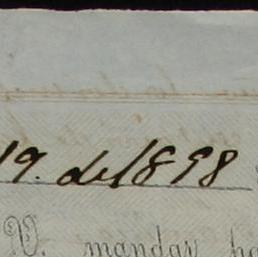 19. de 1898
V. mandar